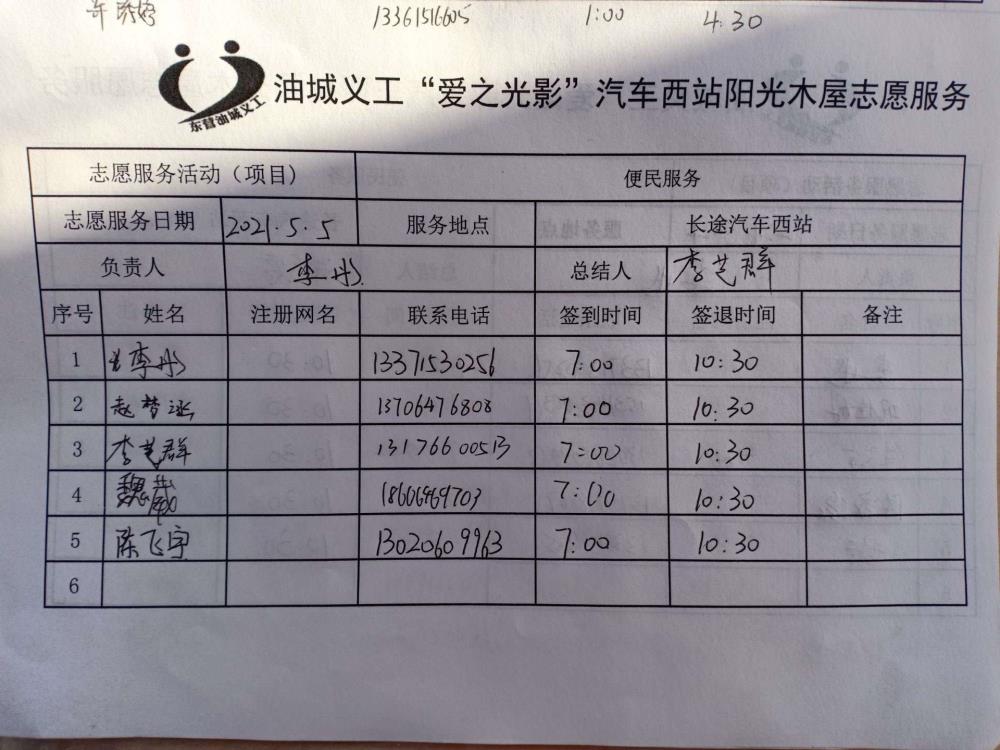 13361516605 1:00 4:30
东营油城义工
油城义工“爱之光影”汽车西站阳光木屋志愿服务
志愿服务活动（项目） 便民服务
志愿服务日期 2021.5.5 服务地点 长途汽车西站
负责人 李丹 总结人 李芝群
序号 姓名 注册网名 联系电话 签到时间 签退时间 备注
1 李丹 13371530256 7:00 10:30
2 赵梦泳 13706476808 7:00 10:30
3 李芝群 13176600513 7:00 10:30
4 魏葳 18606469703 7:00 10:30
5 陈飞宇 13020609963 7:00 10:30
6